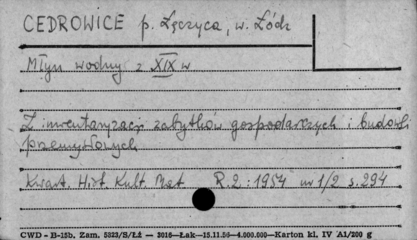 CEDROWICE p. Łęczyca, w. Łódź
Młyn wodny z XIX w
Z inwentaryzacji zabytków gospodarczych i budowli
przemysłowych
Kwart. Hist. Kult. Mat. R.2: 1954 nr 1/2 s. 294
CWD - B-15b. Zam. 5823/S/Łż — 3016—Łak—15.11.56—4.000.000—Karton kl. IV A1/200 g